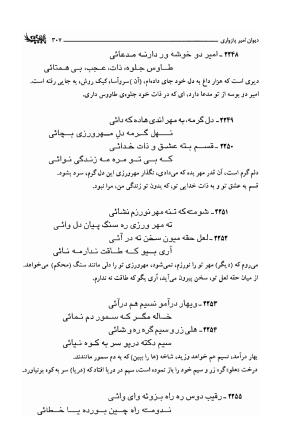 دیوان امیر پازواری ۳۰۷
۲۲۴۸ـ امیر دو خوشه ور دارنه مدعائی
طاوس جلوه، ذات، عجب، بی همتائی
دیری است که هزار داغ به دل خود جای داده‌ام، (آن )سروآسا، کبک روش، به جایی رفته است.
امیر دو بوسه از تو مدعا دارد، ای که در ذات خود جلوه‌ی طاووس داری.
۲۲۴۹ـ دل گرمه، به مهر اندی هاده که دائی
نهل گرمه دل مهرورزی بچائی
۲۲۵۰ـ قسم به ته عشق و ذات خدائی
که بی تو مره مه زندگی نوائی
دلم گرم است، آن قدر مهر بده که می‌دادی، نگذار مهرورزی این دل گرم، سرد بشود.
قسم به عشق تو و به ذات خدایی تو، که بدون تو زندگی من، مرا نبود.
۲۲۵۱ـ شومته که تنه مهر نورزم نشائی
ته مهر ورزی ره سنگ پیان دل وائی
۲۲۵۲ـ لعل حقه میون سخن ته در آئی
آری بیو که طاقت ندارمه نائی
می‌روم که (دیگر) مهر تو را نورزم، نمی‌شود، مهرورزی تو را دلی مانند سنگ (محکم) می‌خواهد.
از میان حقه لعل تو، سخن بیرون می‌آید، آری بگو که طاقت نه ندارم.
۲۲۵۳ـ ویهار درآمو نسیم هم درآئی
خاله مگر که سمور دم نمائی
۲۲۵۴ـ هلی زر و سیم گره ره و شائی
سیم دکته دریو سر به کوه نیائی
بهار درآمد، نسیم هم خواهد وزید، شاخه (ها را ببین) که به دم سمور مانندند.
درخت «هلو» گره زر و سیم خود را باز نموده است، سیم در دریا افتاد که (دریا) سر به کوه برنیاورد.
۲۲۵۵ـ رقیب دوس ره راه بزوئه وای وائی
ندومته راه چین بورده یا خطائی